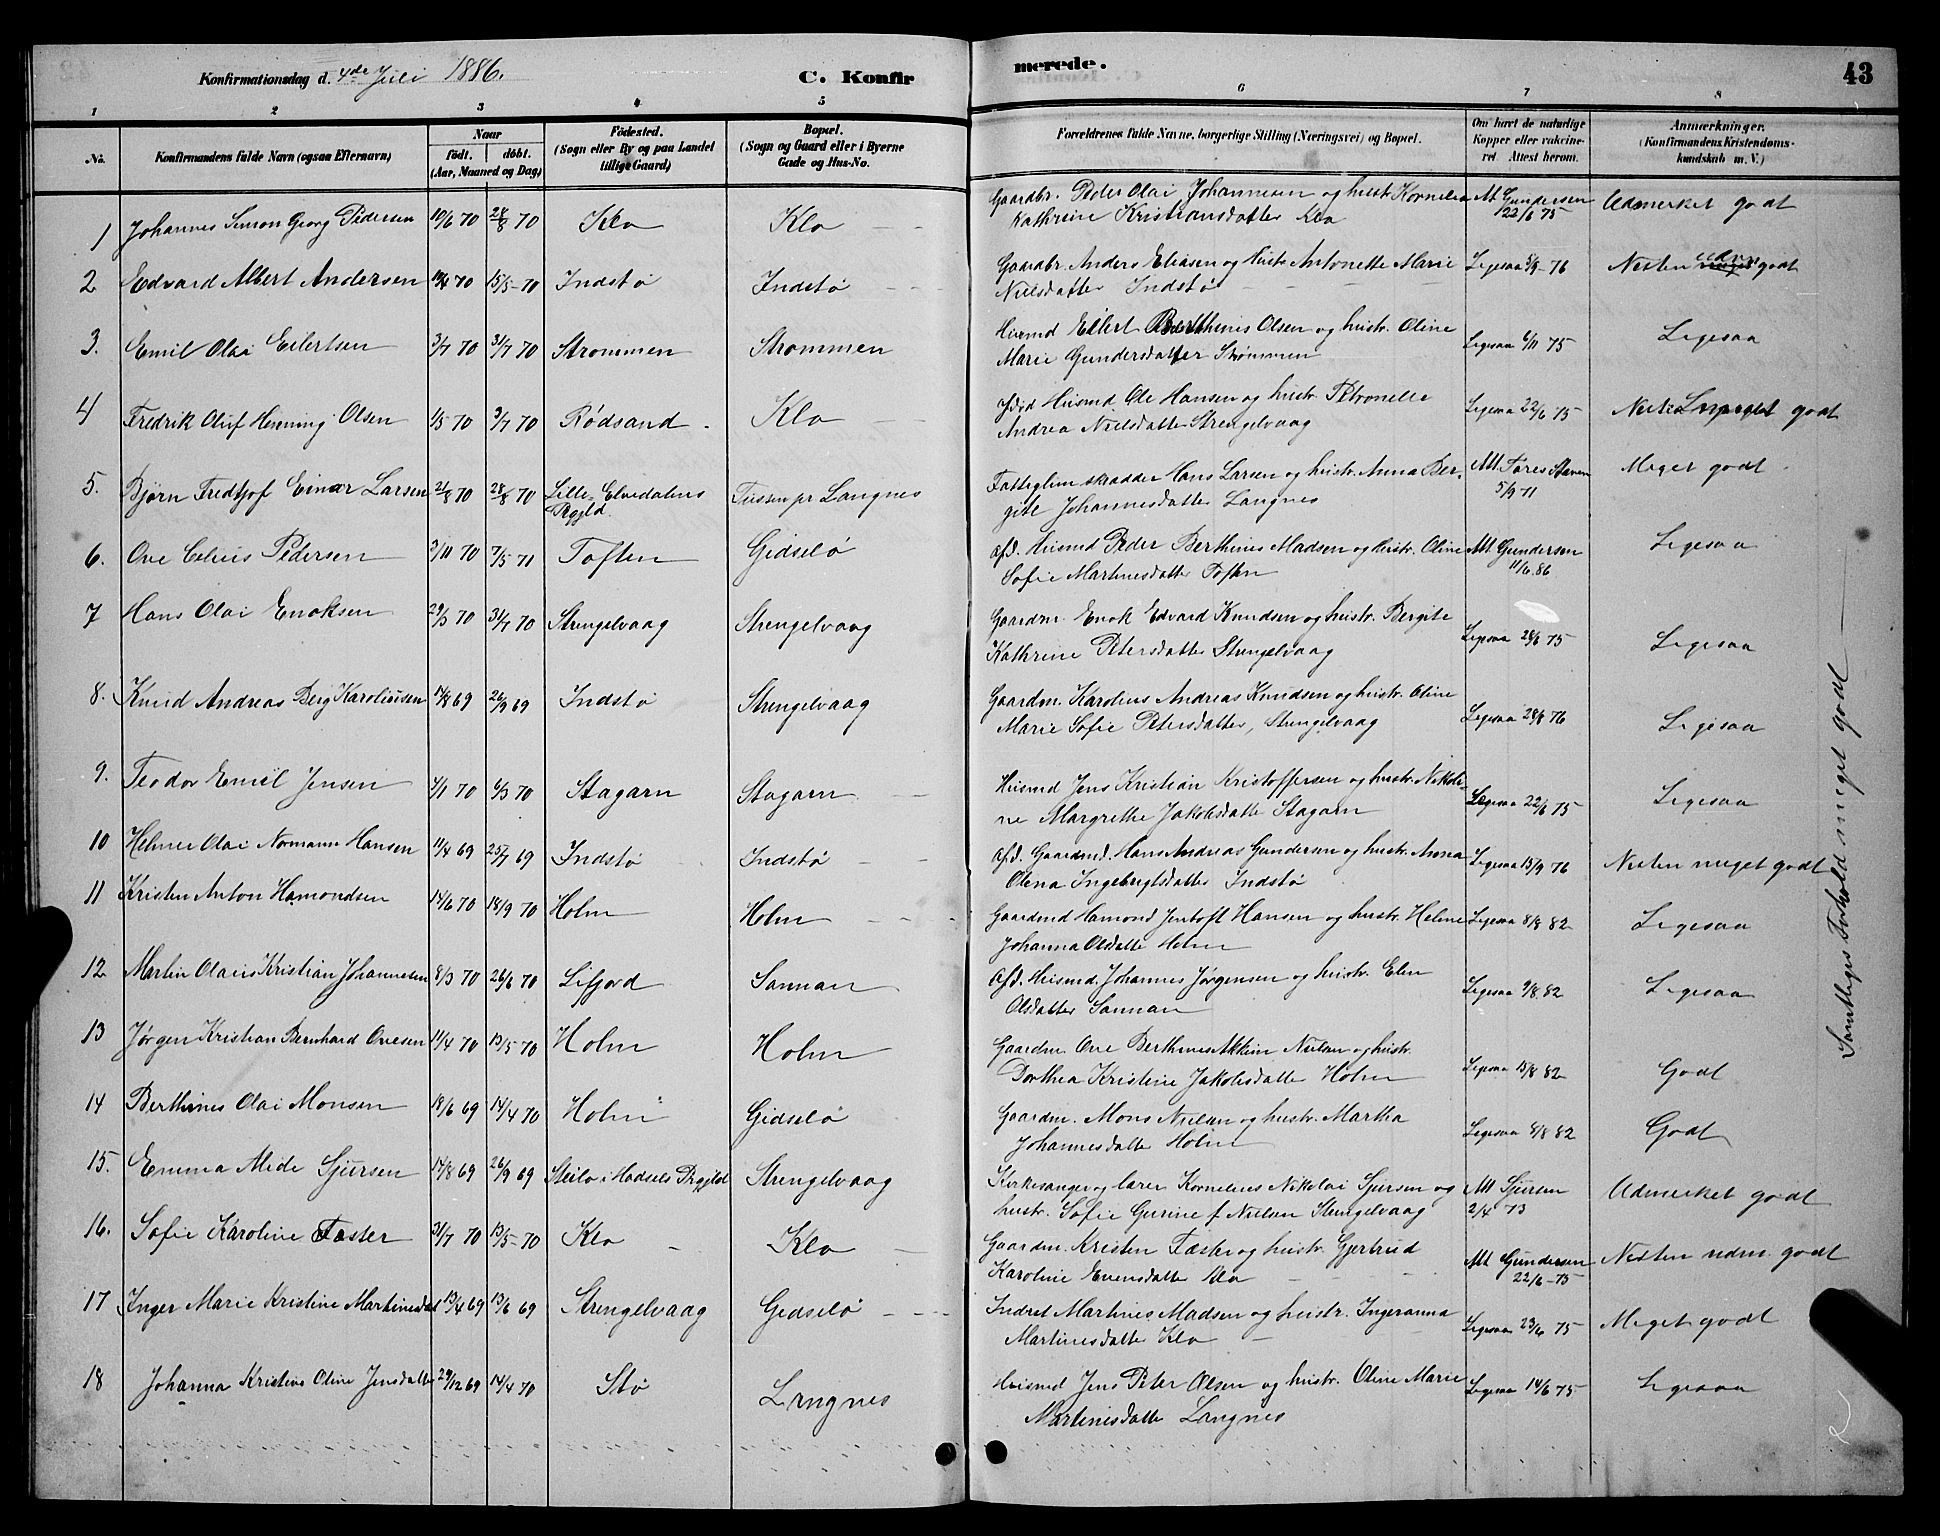 Konfirmationsdag d. 4de Juli 1886. C. Konfir merede. 43
1 2 3 4 5 6 7 8
No. Konfirmandens fulde Navn (ogsaa Efternavn) Naar födt. döbt. (Aar, Maaned og Dag) Födested. (Sogn eller By og paa Landet tillige Gaard) Bopæl. (Sogn og Gaard eller i Byerne Gade og Hus-No. Forældrenes fulde Navne, borgerlige Stilling (Næringsvei) og Bopæl. Om havt de naturlige Kopper eller vakcineret. Attest herom. Anmærkninger. (Konfirmandens Kristendomskundskab m. V.)
1 Johannes Simon Georg Pedersen 10/6 70 28/8 70 Klo Klo Gaardbr. Peder Olai Johannesen og hustr Kornelia Att Gundersen Udmerket godt
Kathrine Kristiansdatter Klo 22/6 75
2 Edvard Albert Andersen 70 15/5 70 Indstø Indstø Gaardbr. Anders Eliasen og Hustr Antonette Marie Ligesaa 76 Nesten udm godt
Nielsdatter Indstø
3. Emil Olai Eilertsen 3/7 70 31/7 70 Strommen Strommen Husmd Eilert Berthinus Olsen og hustr. Oline Ligesaa 6/11 75 Ligesaa
Marie Gundersdatter Strømmen
4 Fredrik Oluf Henning Olsen 1/5 70 3/7 70 Rødsand Klo Husmd Ole Hansen og hustr. Petronelle Ligesaa 22/6 75 godt
Andrea Nielsdatter Strengelvaag
5. Bjørn Fredtjof Einar Larsen 2/8 70 28/8 70 Lille-Elvedalens Prgjld. Tussen pr Langnes Fattiglem skrædder Hans Larsen og hustr. Anna Ber- Att. Meget godt
gite Johannesdatter Langnes 5/9 71
6. Ove Pedersen 3/11 70 7/5 71 Toften Gidselø Afd. Husmd Peder Berthines Madsen og hustr. Oline Att Gundersen Ligesaa
Sofie Martinesdatter Toften 11/6. 86
7 Hans Olai Enoksen 29/3 70 31/7 70 Strengelvaag Strengelvaag Gaardm. Enok Edvard Knudsen og hustr. Bergite Ligesaa 75 Ligesaa
Kathrine Petersdatter Strengelvaag
8. Knud Andreas Berg Karoliusen 17/8 69 26/9 69 Indstø Strengelvaag Gaardm. Karolius Andreas Knudsen og hustr. Oline Ligesaa 76 Ligesaa
Marie Sofie Petersdatter, Strengelvaag
9. Teodor Emil Jensen 4/1 70 6/3 70 Stagarn Stagarn Husmd Jens Kristian Kristoffersen og hustr. Nikoli- Ligesaa 22/6 75 Ligesaa
ne Margrethe Jakobsdatter Stagarn
10 Helmer Olai Normann Hansen 11/4 69 25/7 69 Indstø Indstø Afd. Gaardmd. Hans Andreas Gundersen og hustr. Anna Ligesaa 13/9 76 Nesten meget godt
Olena Ingebrigtsdatter Indstø
11 Kristen Anton Hamondsen 14/6 70 18/9 70 Holm Holm Gaardmd Hamond Jentoft Hansen og hustr. Helene Ligesaa 8/8 82 Ligesaa
Johanna Olsdatter Holm
12 Martin Olaus Kristian Johannesen 8/3 70 26/6 70 Lifjord Sannan Afd. Husmd. Johannes Jørgensen og hustr. Elen Ligesaa 9/8. 82 Ligesaa
Olsdatter Sannan
13 Jørgen Kristian Bernhard Ovesen 11/4 70 15/5 70 Holm Holm Gaardm. Ove Berthines Nielsen og hustr. Ligesaa 82 Godt
Dorthea Kristine Jakobsdatter Holm
14 Berthines Olai Monsen 18/6 69 14/4 70 Holm Gidselø Gaardm. Mons Nielsen og hustr. Martha Ligesaa 8/8 82 Godt
Johannesdatter Holm
15. Emma Alide Sjursen 14/8 69 26/9 69 Steilo i Hadsels Prgjld Strengelvaag Kirkesanger og lærer Kornelius Nikolai Sjursen og Att Sjursen Udmerket godt
hustr. Sofie Gurine f. Nielsen Strengelvaag 2/4 73
16. Sofie Karoline Fæster 31/7 70 70 Klo Klo Gaardm. Kristen Fæster og hustr. Gjertrud Att Gundersen Nesten udm. godt
Karoline Evensdatter Klo 22/6-75
17 Inger Marie Kristine Martinesdat 13/4 69 13/6 69 Strengelvaag Gidselø Indret Martines Madsen og hustr. Ingeranna Ligesaa 23/6 75 Meget godt
Martinesdatter Klo
18 Johanna Kristine Oline Jensdatter 29/12 69 14/4 70 Stø Langnes Husmd Jens Peter Olsen og hustr. Oline Marie Ligesaa 14/6 75 Ligesaa
Martinisdatter Langnes
Samtliges Forhold meget godt